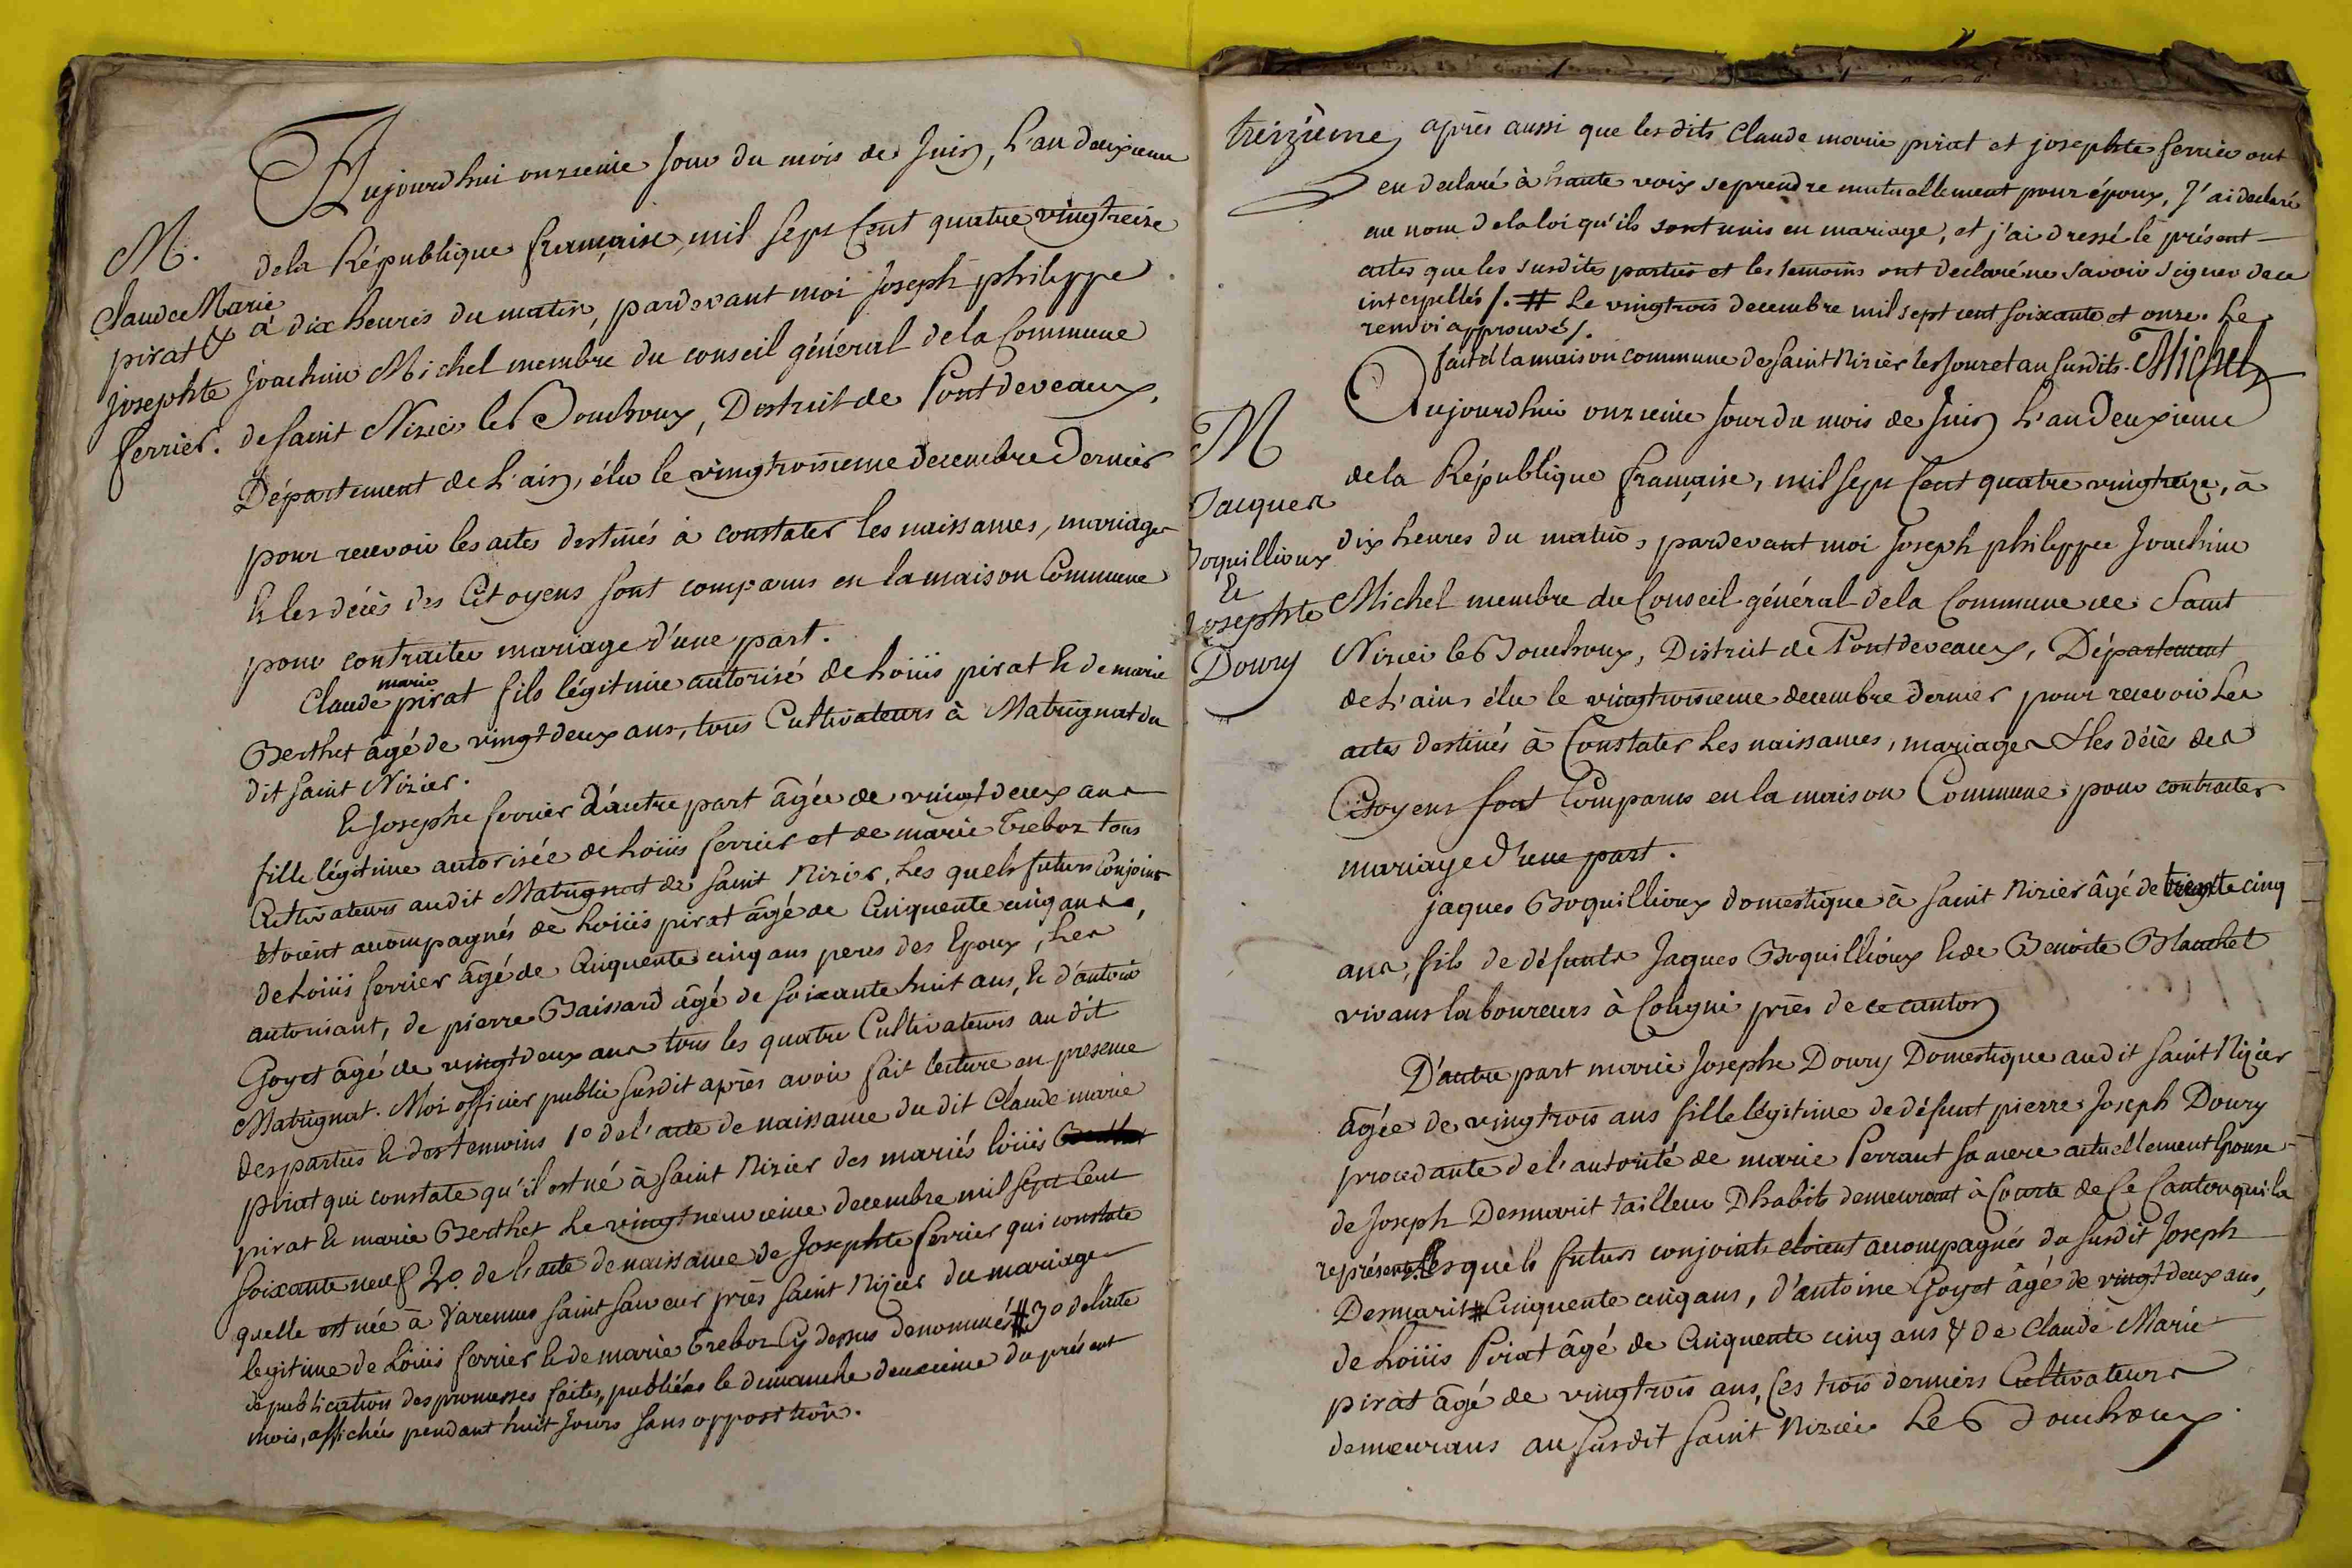 Aujourdhui onzieme Jour du mois de Juin, L'an deuxieme
M.
dela République francaise, mil Sept Cent quatre vingtreize
Claude Marie
pirat &
josephte
ferrier.
à dix heures du matin, pardevant moi Joseph philippe
Joachim Michel membre du conseil général dela Commune
de saint Nizier les Bouchoux, District de Pontdeveaux,
Département de L'ain, élu le vingtroisieme decembre Dernier
pour recevoir les actes destinés à constater les naissances, mariages
& les décès des Citoyens sont comparus en la maison Commune
pour contracter mariage d'une part.
Claude marie pirat fils légitime autorisé de Loüis pirat & de marie
Berthet âgé de vingt deux ans, tous Cultivateurs à Matrignat du
dit saint Nizier.
& Josephe ferrier d'autre part âgée de vingt deux ans
fille légitime autorisée de Loüis ferrier et de marie Treboz tous
Cultivateurs audit Matrignat de saint Nizier, Les quels futurs Conjoints
étoient accompagnés de Loüis pirat âgé de Cinquente cinq ans,
de Loüis ferrier âgé de Cinquente cinq ans peres des Epoux, Les
autorisant, de pierre Baissard âgé de soixante huit ans, & d'antoine
Goyet âgé de vingt deux ans tous les quatre Cultivateurs au dit
Matrignat. Moi officier public susdit après avoir fait lecture en presence
des parties & des temoins 1º de l'acte de naissance du dit Claude marie
pirat qui constate qu'il est né à saint Nizier des mariés loüis
pirat & marie Berthet Le vingt neuvieme decembre mil sept Cent
soixante neuf 2º. de L'acte de naissance de Josephte ferrier qui constate
quelle est née à Varennes saint sauveur près saint Nizier du mariage
legitime de Loüis ferrier & de marie Treboz Cy dessus denommés # 3º de l'acte
de publication des promesses faites, publiées le dimanche deuxieme du présent
mois, affichées pendant huit Jours sans opposition.
treizieme après aussi que les dits Claude marie pirat et josephte ferrier ont
eu declaré à haute voix se prendre mutuellement pour époux, J'ai declaré
au nom dela loi qu'ils sont unis en mariage, et j'ai dressé le présent
acte que les susdites parties et les temoins ont declaré ne savoir signer de ce
interpellés /. # Le vingtrois decembre mil sept cent soixante et onze. Le
renvoi approuvé /.
fait à la maison commune de saint Nizier les Jour et an susdits. Michel
Aujourdhui onzieme Jour du mois de Juin L'an Deuxieme
M
Jacques
Boquillioux
&
Josephte
Doury
dela République francaise, mil sept Cent quatre vingtreize, à
dix heures du matin, pardevant moi Joseph philippe Joachim
Michel membre du Conseil général dela Commune de Saint
Nizier les Bouchoux, District de Pontdeveaux, Département
de L'ain élu le vingtroisieme decembre dernier pour recevoir Les
actes destinés à Constater Les naissances, mariages & les décès des
Citoyens sont Comparus en la maison Commune pour contracter
mariage d'une part.
jaques Boquillioux domestique à saint Nizier âgé de trente cinq
ans, fils de défunts Jaques Boquillioux & de Benoite Blanchet
vivans laboureurs à Coligni près de ce canton
D'autre part marie Josephe Doury Domestique audit saint Nizier
âgée de vingtrois ans fille légitime de défunt pierre Joseph Doury
procedante de l'autorité de marie Perrant sa mere actuellement Epouse
de Joseph Desmarit tailleur D'habits demeurant à Courte de Ce Canton qui la
représente. Lesquels futurs conjoints etoient accompagnés du susdit Joseph
Desmarit # Cinquente cinq ans, d'antoine Goyet âgé de vingt deux ans,
de Loüis Pirat âgé de Cinquente cinq ans & de Claude Marie
pirat âgé de vingtrois ans, Ces trois derniers Cultivateurs
demeurans au susdit saint Nizier Les Bouchoux.